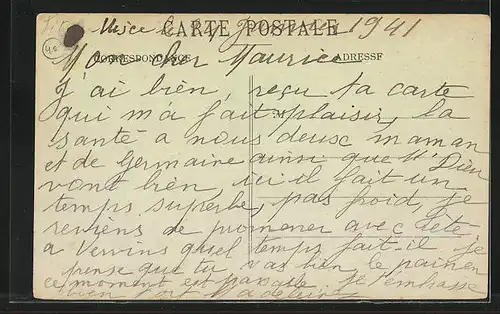 Nice le 2 1941
CARTE POSTALE
CORRESPONDANCE ADRESSE
Mon cher Maurice
J'ai bien, reçu ta carte
qui m'a fait plaisir, la
M
santé a nous deux maman
et de Germaine ainsi que Mr Dieu
vont bien, ici il fait un
temps superbe, pas froid, je
reviens de promener avec
a Vervins quel temps fait-il je
pense que tu vas bien le
ce moment est pas je t'embrasse
bien fort Madeleine